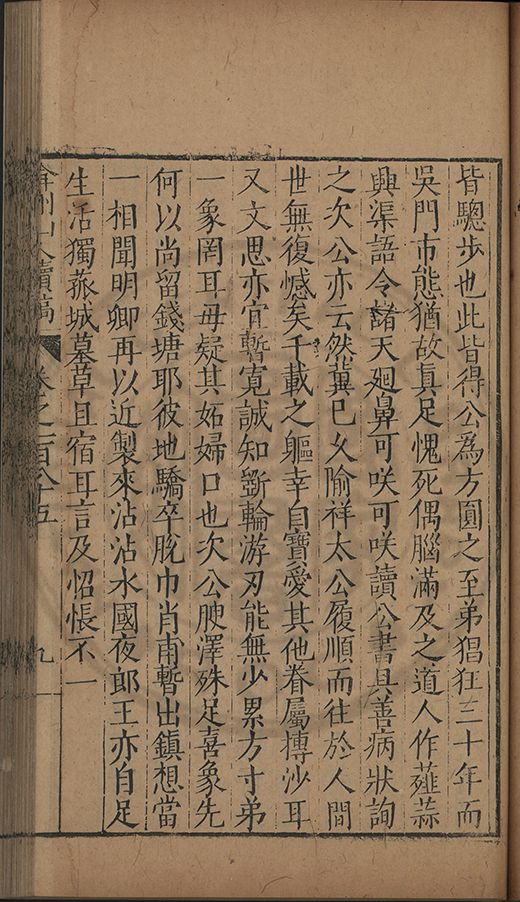 皆驄步也此皆得公為方圓之至弟猖狂三十年而
吳門市態猶故真足愧死偶腦滿及之道人作薤蒜
興渠語令諸天廻鼻可咲可咲讀公書具善病狀詢
之次公亦云然冀巳夂隃祥太公履順而往於人間
世無復憾矣千載之軀幸自寶愛其他眷屬摶沙耳
又文思亦宜暫寬誠知斵輪游刃能無少累方寸弟
一象罔耳毋疑其妬婦口也次公腴澤殊足喜象先
何以尚留錢塘耶彼地驕卒脫巾肖甫暫出鎮想當
一相聞明卿再以近製來沾沾水國夜郎王亦自足
生活獨菰城墓草且宿耳言及怊悵不一
弇州山人續稿 卷之一百八十五 九